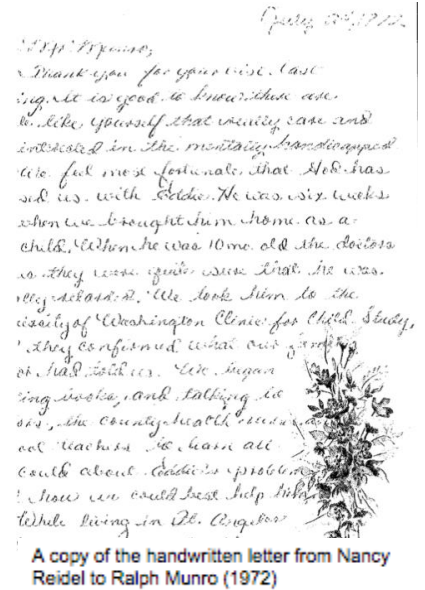 July
Mr Munro,
Thank you for your visit last
ing. It is good to know there are
le like yourself that really care and
interested in the mentally handicapped
We feel most fortunate that God has
sed us with Eddie. He was six weeks
when we brought him home as a
child. When he was 10 mo. old the doctors
they were quite sure that he was
lly retarded. We took him to the
versity of Washington Clinic for Child Study,
they confirmed what our
or had told us. We began
ing books, and talking to
ors, the county health
ool teachers to learn all
could about Eddie's problem
how we could best help him
While living in Pt. Angeles
A copy of the handwritten letter from Nancy
Reidel to Ralph Munro (1972)